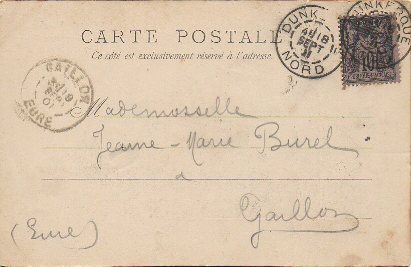 CARTE POSTALE
Ce côté est exclusivement réservé à l'adresse
DUNKERQUE
DUNKE
18
SEPT
NORD
GAILLON
18
01
EURE
Mademoiselle
Jeanne-Marie Burel
à
Gaillon
(Eure)